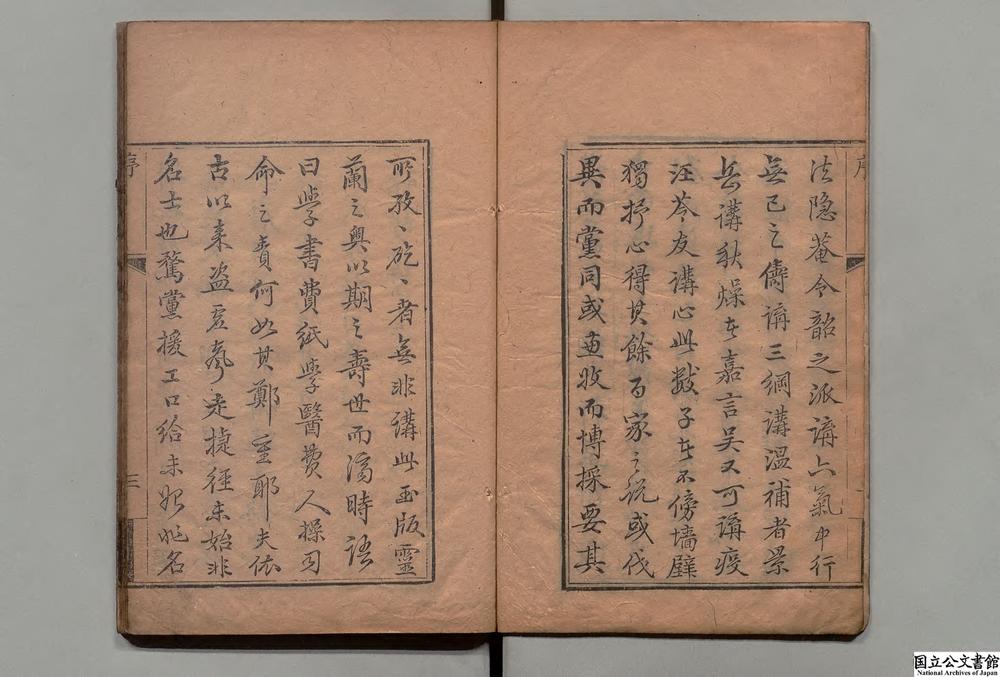 序
法隐菴今韶之派講六氣中行
無己之儔講三綱講温補者景
岳講秋燥者嘉言吴又可講疫
汪苓友講心此数子者不傍墙壁
獨抒心得其餘百家之説或伐
異而黨同或兼收而博採要其
所孜〻矻〻者無非講此玉版靈
蘭之奥以期之壽世而濟時語
曰學書費紙學醫費人操司
命之責何如其鄭重耶夫依
古以来盗虚聲走捷徑未始非
名士也騖黨援工口给未始非名
序
三
国立公文書館
National Archives of Japan